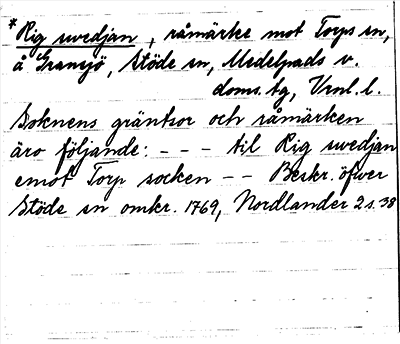 *Rig swedjan, råmärke mot Torps sn,
å Gransjö, Stöde sn, Medelpads v.
doms.tg, Vrnl. l.
Soknens gräntsor och råmärken
äro följande: - - - til Rig swedjan
emot Torp socken - - Beskr. öfwer
Stöde sn omkr. 1769, Nordlander 2 s. 38